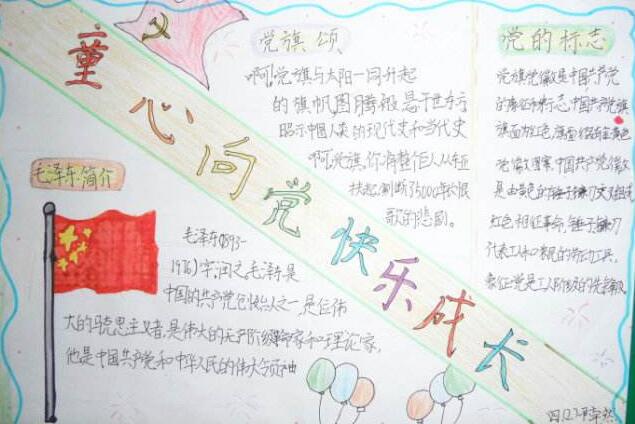 童心向党快乐成长
党旗颂
啊,党旗与太阳一同升起
的旗帜,图腾般悬于世东方
昭示中国人类的现代史和当代史
啊,党旗,你将整个人从东亚
扶起,制断了5000年的恨
歌的悲剧。
党的标志
党旗党徽是中国共产党
的象征和标志,中国共产党旗
旗面为红色,
党徽图案,中国共产党党徽
是由
红色,相征革命,锤子镰刀
代表工人和农民的劳动工具,
象征党是工人阶级的先锋队
毛泽东简介
毛泽东(1893-
1976)字润之毛泽东是
中国的共产党创始人之一,是位伟
大的马克思主义者,是伟大的无产阶级军家和理论家,
他是中国共产党和中华人民的伟大领袖